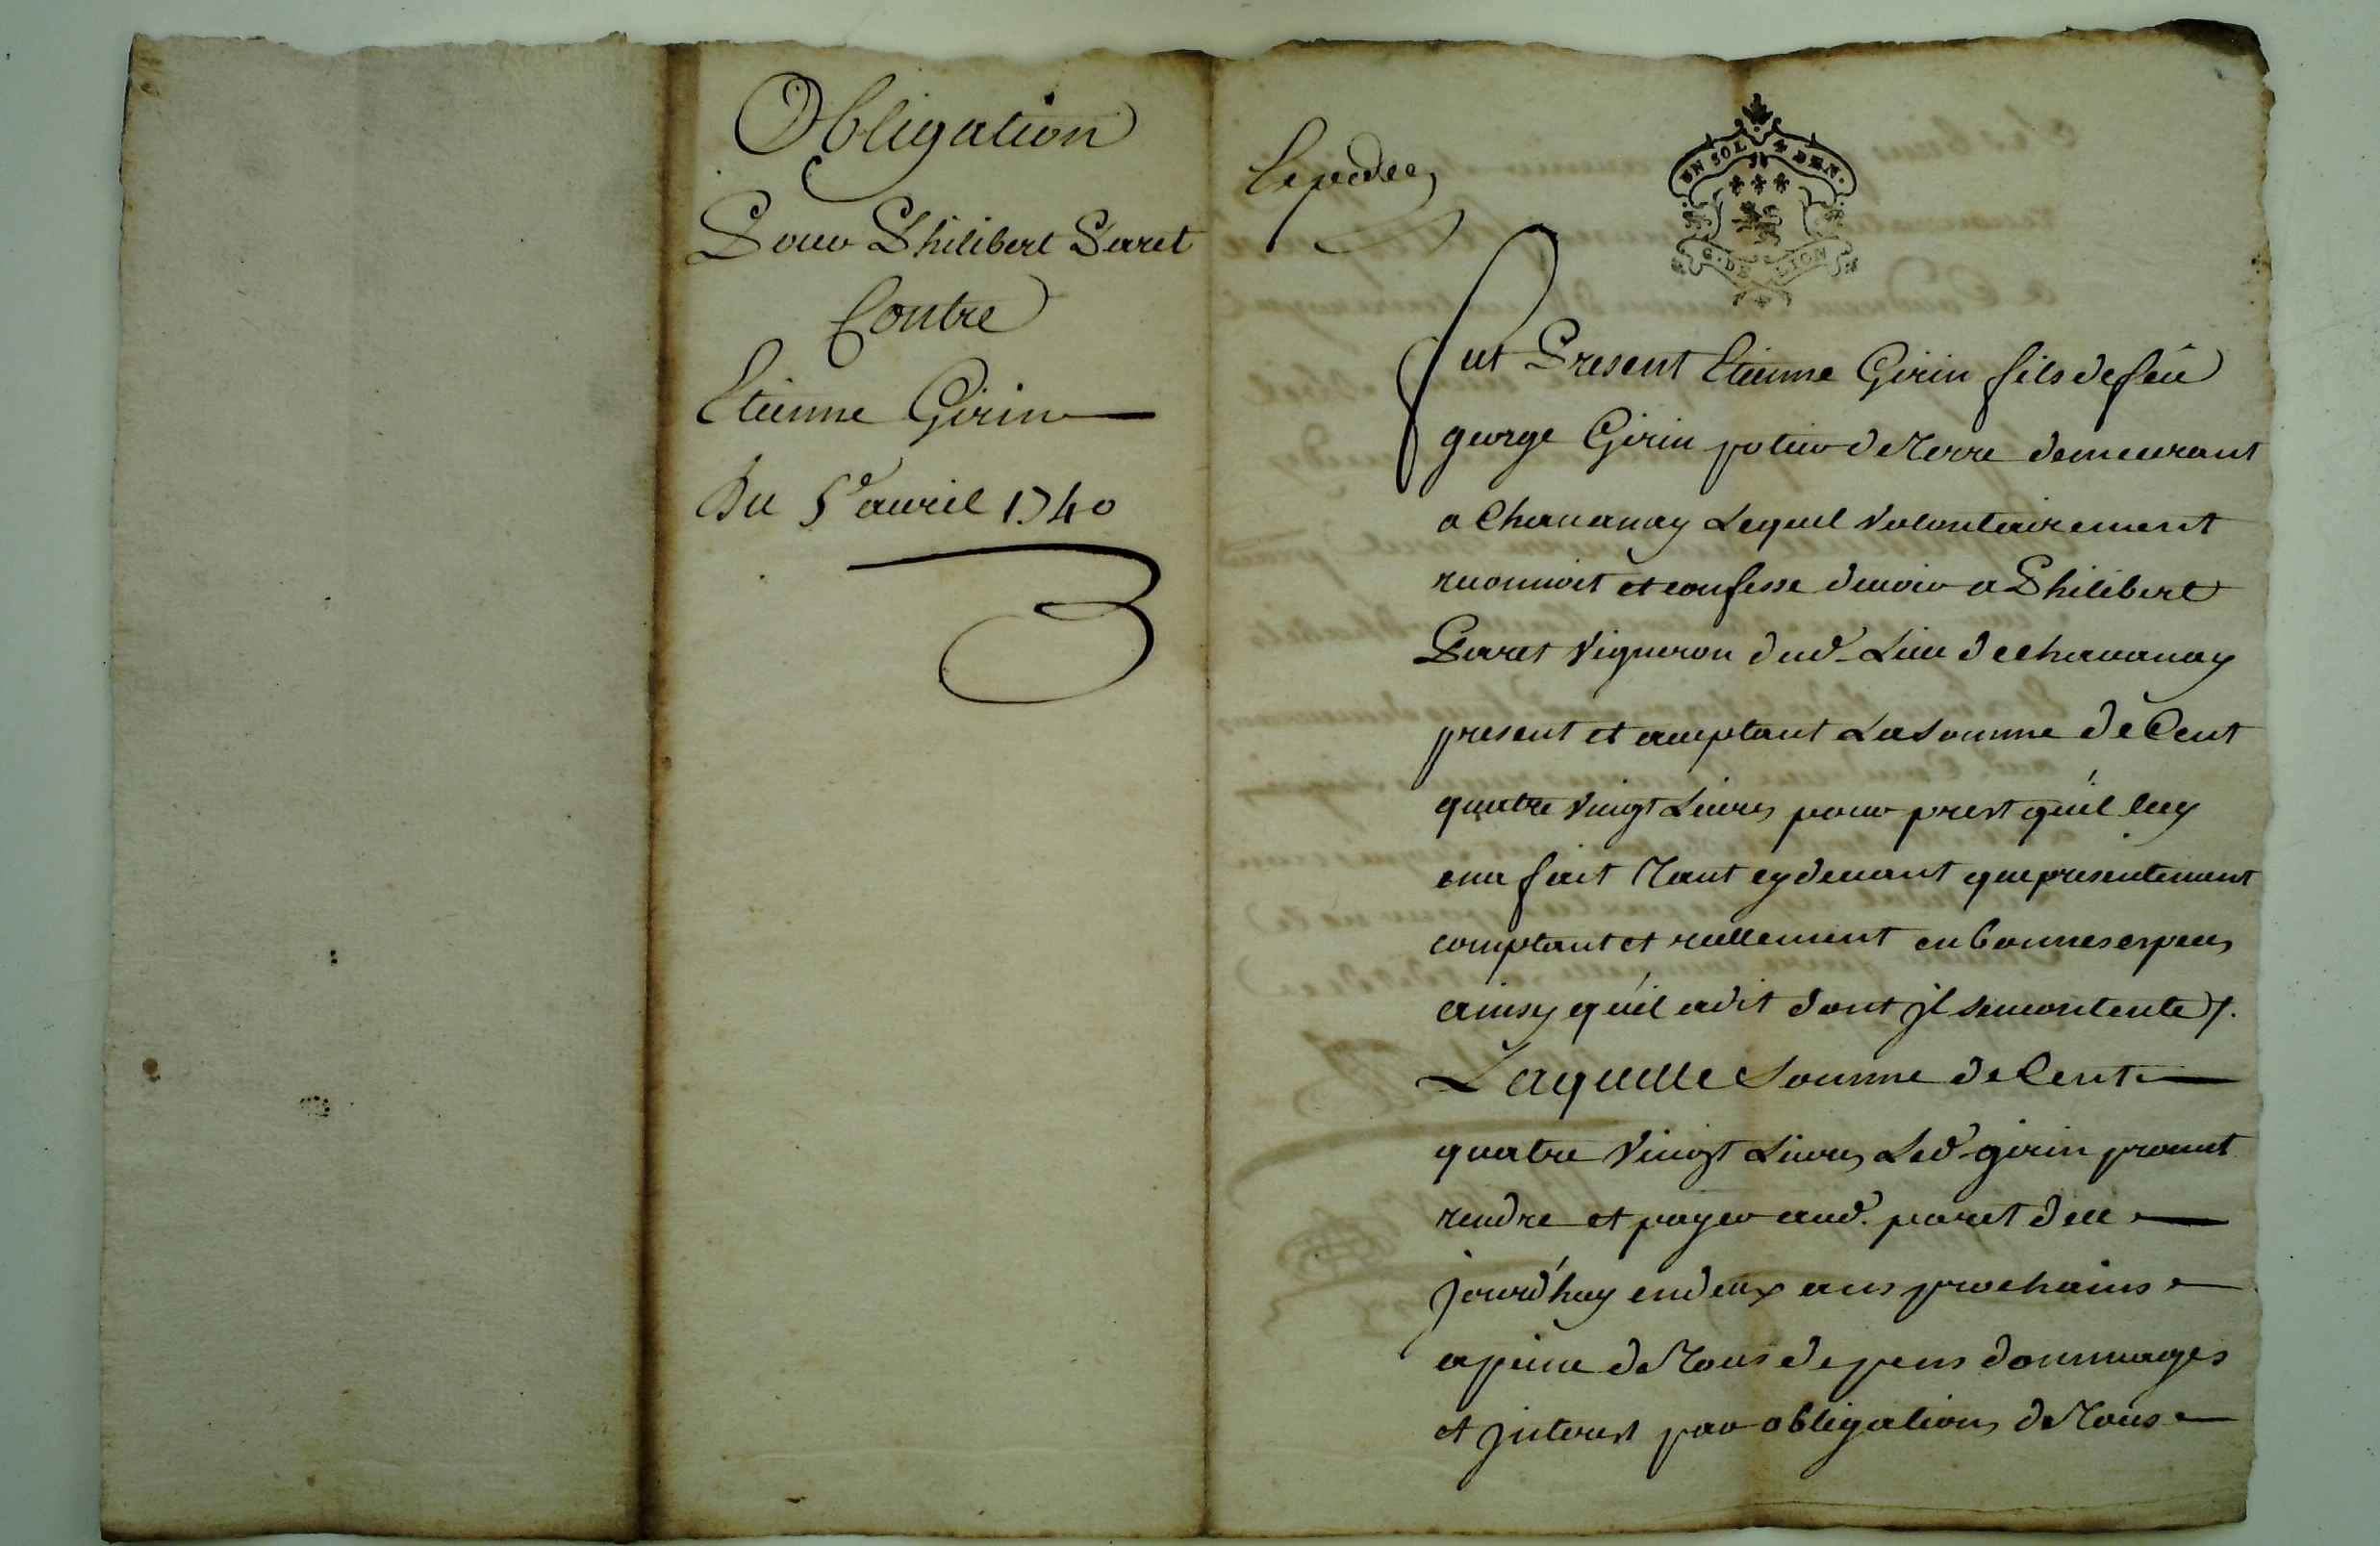 Obligation
Pour Philibert Paret
Contre
Etienne Girin
Du 5e avril 1740
Expediee
UN SOL 4 DEN.
G. DE LION
fut Present Etienne Girin fils de feû
george Girin potier de Terre demeurant
a Chauanay Lequel Volontairement
reconnoit et confesse deuoir a Philibert
Paret Vigneron dud. Lieu de chauanay
present et acceptant La Somme de Cent
quatre Vingt Liures pour prest qu'il luy
en a fait Tant cy deuant que presentement
comptant et reellement en bonnes especes
ainsy qu'il a dit dont jl se contente /.
Laquelle Somme de Cent
quatre Vingt Liures Led. girin promet
rendre et payer aud. paret de ce
jourd'huy en deux ans prochains
a peine de Tous depens dommages
et jnterest par obligation de Tous